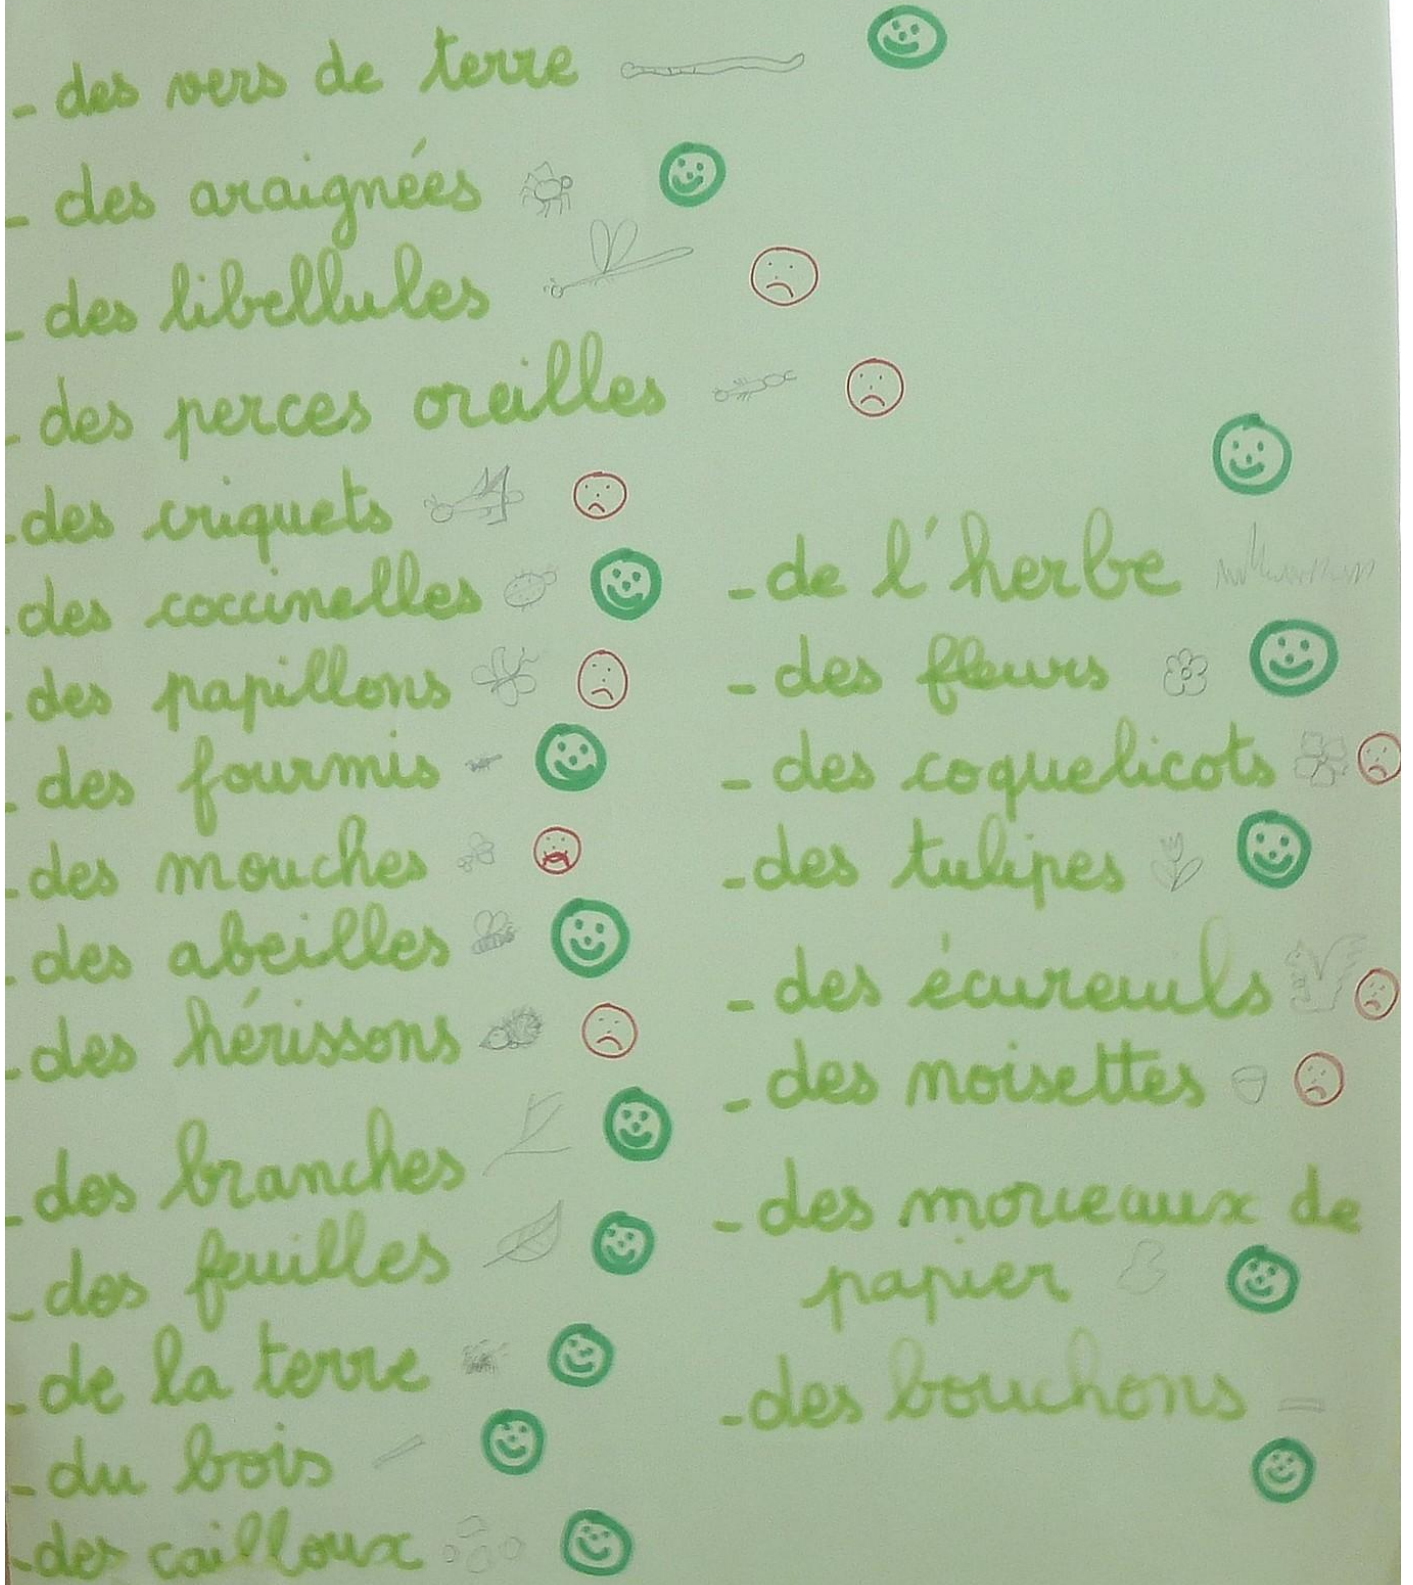 - des vers de terre
- des araignées
- des libellules
- des perces oreilles
- des criquets
- des coccinelles
- des papillons
- des fourmis
- des mouches
- des abeilles
- des hérissons
- des branches
- des feuilles
- de la terre
- du bois
- des cailloux
- de l'herbe
- des fleurs
- des coquelicots
- des tulipes
- des écureuils
- des noisettes
- des morceaux de
papier
- des bouchons